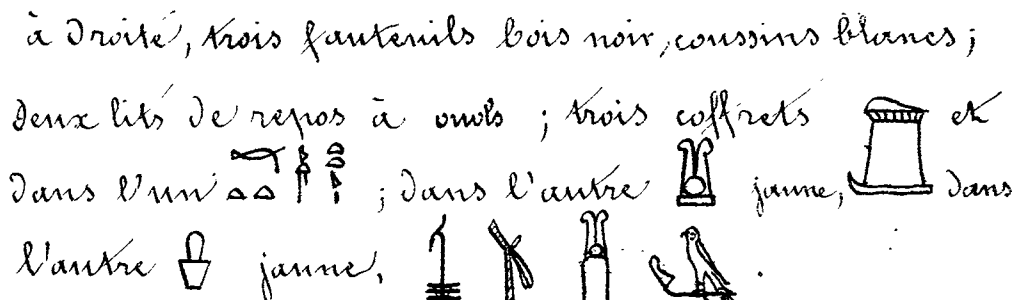 à droite, trois fauteuils bois noir, coussins blancs;
deux lits de repos à ; trois coffrets et
dans l'un ; dans l'autre jaune, dans
l'autre jaune, .